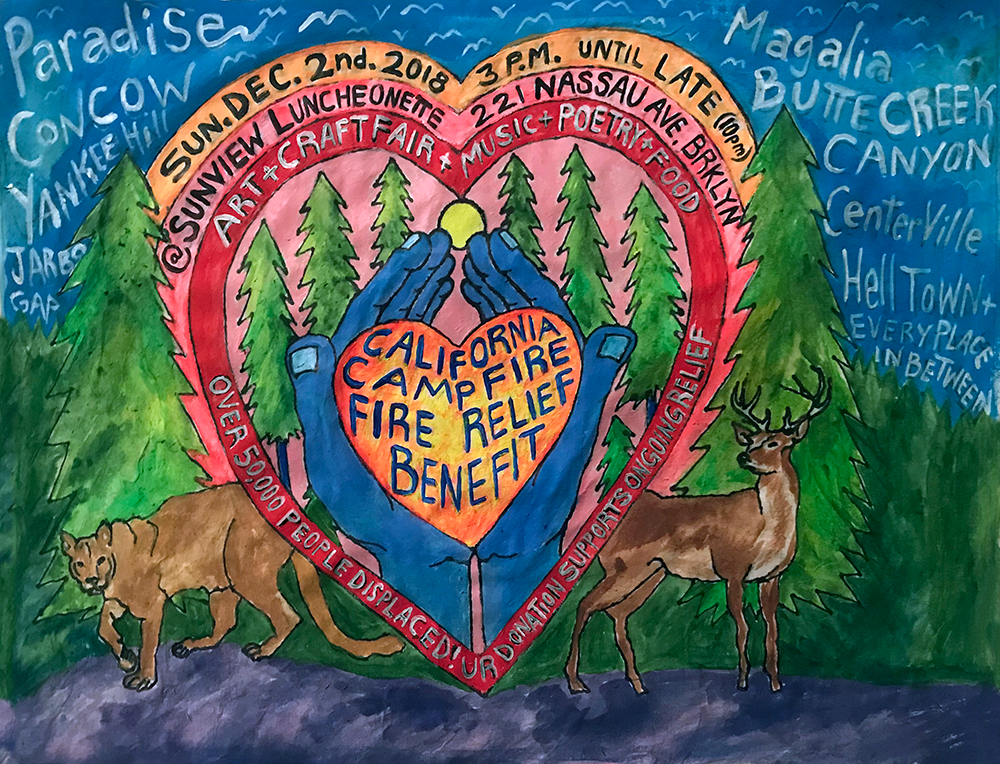 Paradise
CONCOW
YANKEE Hill
JARBO
GAP
Magalia
BUTTE CREEK
CANYON
CenterVille
Hell TOWN +
EVERY PLACE
IN BETWEEN
SUN. DEC. 2nd. 2018 3 P.M. UNTIL LATE (10pm)
@SUNVIEW LUNCHEONETTE 221 NASSAU AVE. BRKLYN
ART + CRAFT FAIR + MUSIC + POETRY + FOOD
CALIFORNIA
CAMPFIRE
FIRE RELIEF
BENEFIT
OVER 50,000 PEOPLE DISPLACED! UR DONATION SUPPORTS ONGOING RELIEF